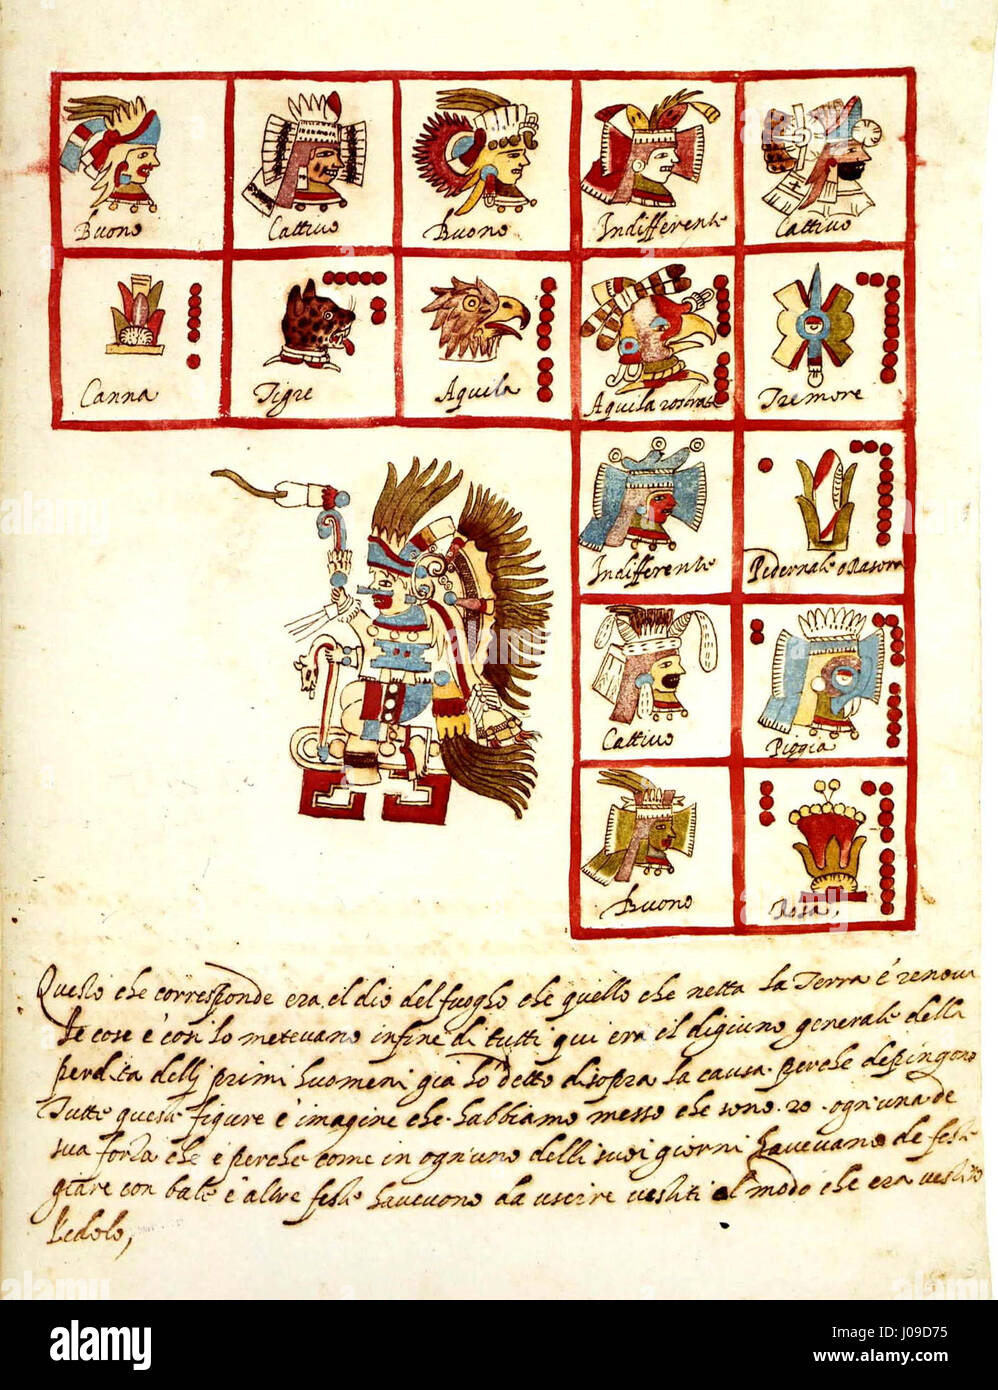 Buono Cattivo Buono Indifferente Cattivo
Canna Tigre Aquila Aquila rostrata Tremore
Indifferente Pedernale o Rasora
Cattivo Piogia
Buono Rosa,
Questo che corresponde era el dio del fuogho che quello che netta la Terra é renova
le cose é cosi lo metevano infine di tutti qui era il digiuno generale della
perdita delli primi huomeni gia ho detto disopra la causa perche depingono
Tutte queste figure é imagine che habbiamo messo che sono 20 ogn'una de
sua forta che é perche come in ogn'uno delli suoi giorni havevano de feste
giare con bale é altre feste havevono da uscire vestiti al modo che era vestito
l'edolo,
alamy
Image ID: J09D75
www.alamy.com